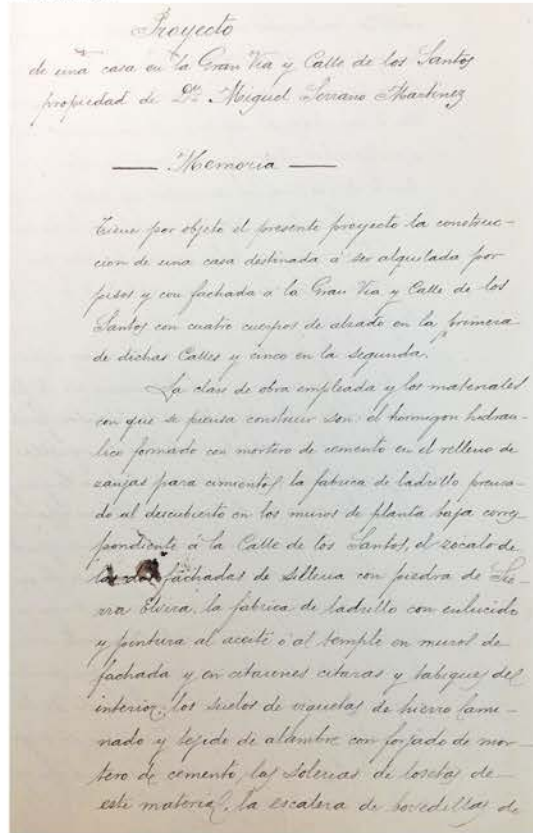 Proyecto
de una casa en la Gran Via y Calle de los Santos
propiedad de Dn. Miguel Serrano Martinez
Memoria
Tiene por objeto el presente proyecto la construc-
cion de una casa destinada á ser alquilada por
pisos y con fachada á la Gran Via y Calle de los
Santos con cuatro cuerpos de alzado en la primera
de dichas Calles y cinco en la segunda.
La clase de obra empleada y los materiales
con que se piensa construir son: el hormigon hidrau-
lico formado con mortero de cemento en el relleno de
zanjas para cimientos, la fabrica de ladrillo prensa-
do al descubierto en los muros de planta baja corres
pondiente á la Calle de los Santos, el zocalo de
las dos fachadas de silleria con piedra de Sie-
rra Elvira, la fabrica de ladrillo con enlucido
y pintura al aceite ó al temple en muros de
fachada y en citarones citaras y tabiques del
interior, los suelos de viguetas de hierro lami-
nado y tejido de alambre con forjado de mor-
tero de cemento, las solerias de losetas de
este material, la escalera de bovedillas de